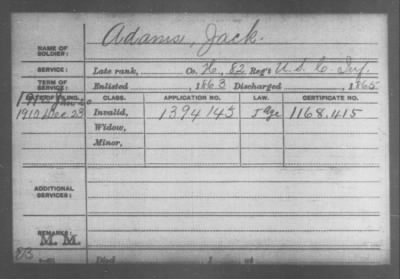 Adams, Jack.
NAME OF SOLDIER:
SERVICE: Late rank, Co. H, 82 Reg't U.S.C. Inf.
TERM OF SERVICE: Enlisted 1863 Discharged 1865
DATE OF FILING. CLASS. APPLICATION NO. LAW. CERTIFICATE NO.
Dec 23 Invalid, 1394145 Age 1168,415
Widow,
Minor,
ADDITIONAL SERVICES:
REMARKS:
M. M.
Died